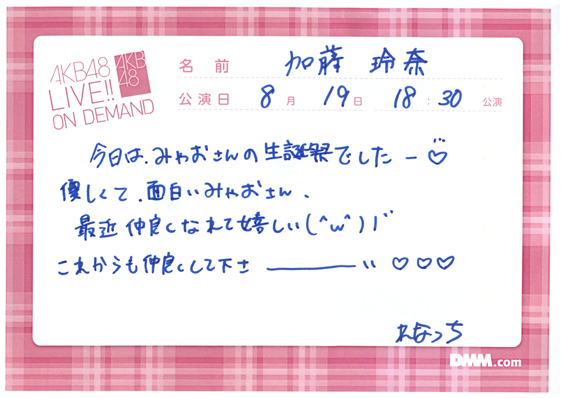 AKB48
LIVE!!
ON DEMAND
AKB
48
名前 加藤 玲奈
公演日 8月 19日 18:30 公演
今日は、みゃおさんの生誕祭でしたー♡
優しくて、面白いみゃおさん、
最近仲良くなれて嬉しい(^ω^)ノ"
これからも仲良くして下さ――――いい ♡♡♡
れなっち
DMM.com